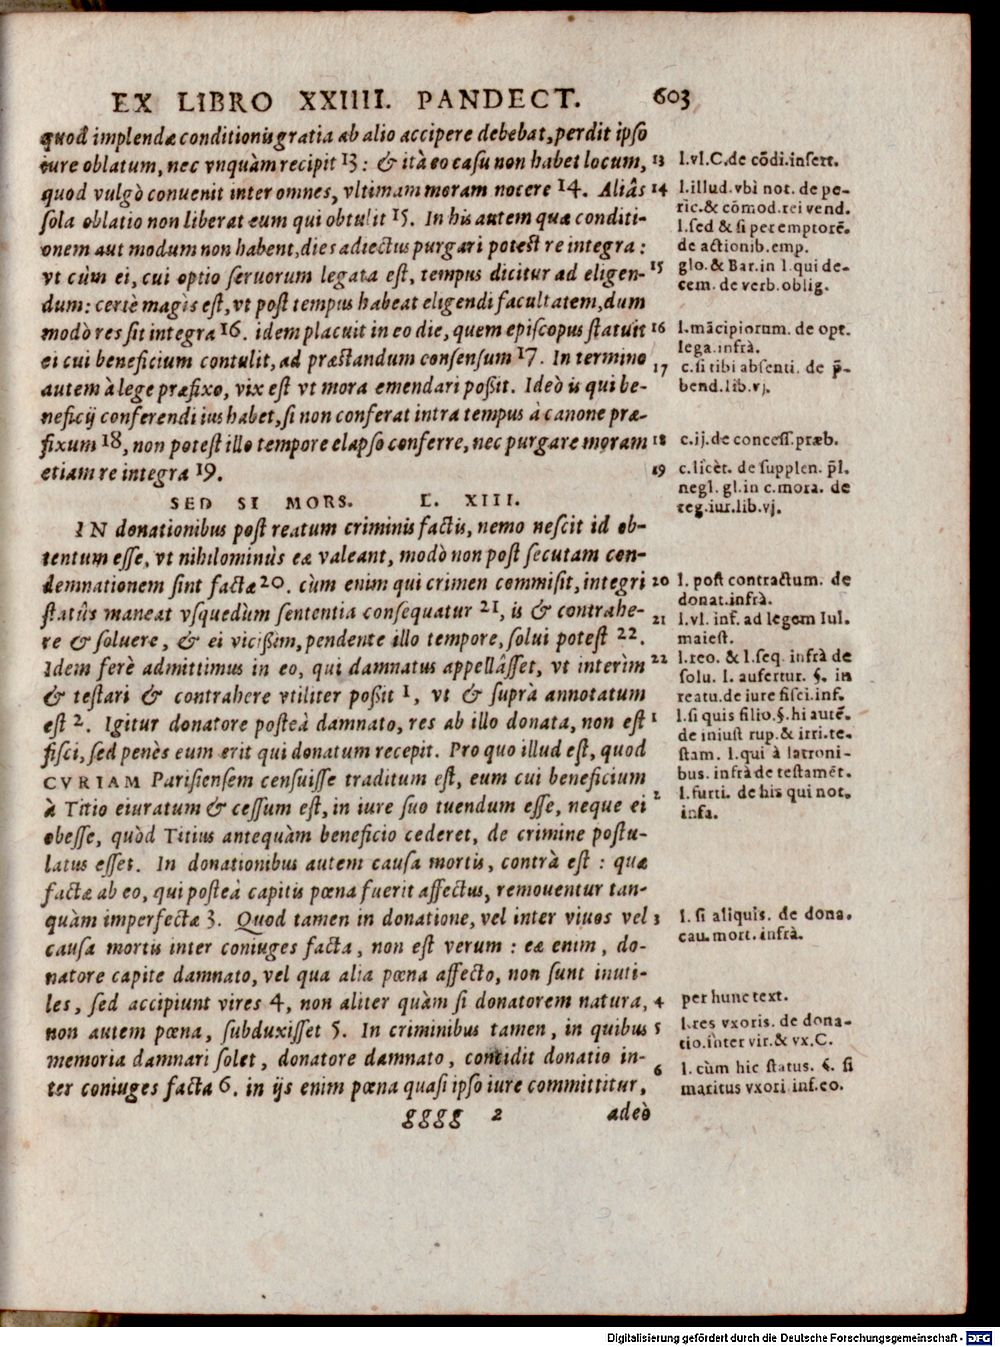 EX LIBRO XXIIII. PANDECT. 603
quod implendæ conditionis gratia ab alio accipere debebat, perdit ipso
iure oblatum, nec vnquàm recipit 13 : & ità eo casu non habet locum,
quod vulgò conuenit inter omnes, vltimam moram nocere 14. Aliâs
sola oblatio non liberat eum qui obtulit 15. In his autem quæ conditi-
onem aut modum non habent, dies adiectus purgari potest re integra :
vt cùm ei, cui optio seruorum legata est, tempus dicitur ad eligen-
dum: certè magis est, vt post tempus habeat eligendi facultatem, dum
modò res sit integra 16. idem placuit in eo die, quem episcopus statuit
ei cui beneficium contulit, ad præstandum consensum 17. In termino
autem à lege præfixo, vix est vt mora emendari poßit. Ideò is qui be-
neficij conferendi ius habet, si non conferat intra tempus à canone præ-
fixum 18, non potest illo tempore elapso conferre, nec purgare moram
etiam re integra 19.
SED SI MORS. L. XIII.
IN donationibus post reatum criminis factis, nemo nescit id ob-
tentum esse, vt nihilominùs eæ valeant, modò non post secutam con-
demnationem sint factæ 20. cùm enim qui crimen commisit, integri
statûs maneat vsquedùm sententia consequatur 21, is & contrahe-
re & soluere, & ei vicißim, pendente illo tempore, solui potest 22.
Idem ferè admittimus in eo, qui damnatus appellâsset, vt interìm
& testari & contrahere vtiliter poßit 1, vt & suprà annotatum
est 2. Igitur donatore posteà damnato, res ab illo donata, non est
fisci, sed penès eum erit qui donatum recepit. Pro quo illud est, quod
CVRIAM Parisiensem censuisse traditum est, eum cui beneficium
à Titio eiuratum & cessum est, in iure suo tuendum esse, neque ei
obesse, quòd Titius antequàm beneficio cederet, de crimine postu-
latus esset. In donationibus autem causa mortis, contrà est : quæ
factæ ab eo, qui posteà capitis pœna fuerit affectus, remouentur tan-
quàm imperfectæ 3. Quod tamen in donatione, vel inter viuos vel
causa mortis inter coniuges facta, non est verum : eæ enim, do-
natore capite damnato, vel qua alia pœna affecto, non sunt inuti-
les, sed accipiunt vires 4, non aliter quàm si donatorem natura,
non autem pœna, subduxisset 5. In criminibus tamen, in quibus
memoria damnari solet, donatore damnato, concidit donatio in-
ter coniuges facta 6. in ijs enim pœna quasi ipso iure committitur,
gggg 2 adeò
13 l.vl.C.de cõdi.insert.
14 l.illud.vbì not. de pe-
ric.& cõmod.rei vend.
l.sed & si per emptorẽ.
de actionib.emp.
15 glo.& Bar.in l.qui de-
cem. de verb.oblig.
16 l.mãcipiorum. de opt.
lega.infrà.
17 c.si tibi absenti. de p̃-
bend.lib.vj.
18 c.ij.de concess.præb.
19 c.licèt. de supplen. p̃l.
negl. gl.in c.mora. de
reg.iur.lib.vj.
20 l. post contractum. de
donat.infrà.
21 l.vl. inf. ad legem Iul.
maiest.
22 l.reo. & l.seq. infrà de
solu. l. aufertur. §. in
reatu.de iure fisci.inf.
1 l.si quis filio.§.hi autẽ.
de iniust rup.& irri.te-
stam. l.qui à latroni-
bus. infrà de testamẽt.
2 l.furti. de his qui not.
infa.
3 l. si aliquis. de dona.
cau.mort.infrà.
4 per hunc text.
5 l.res vxoris. de dona-
tio.ìnter vir.& vx.C.
6 l. cùm hic status. §. si
maritus vxori inf.eo.
Digitalisierung gefördert durch die Deutsche Forschungsgemeinschaft - DFG